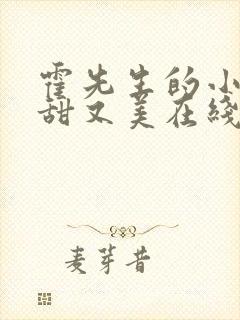 霍先生的小
甜又美在线
麦芽昔